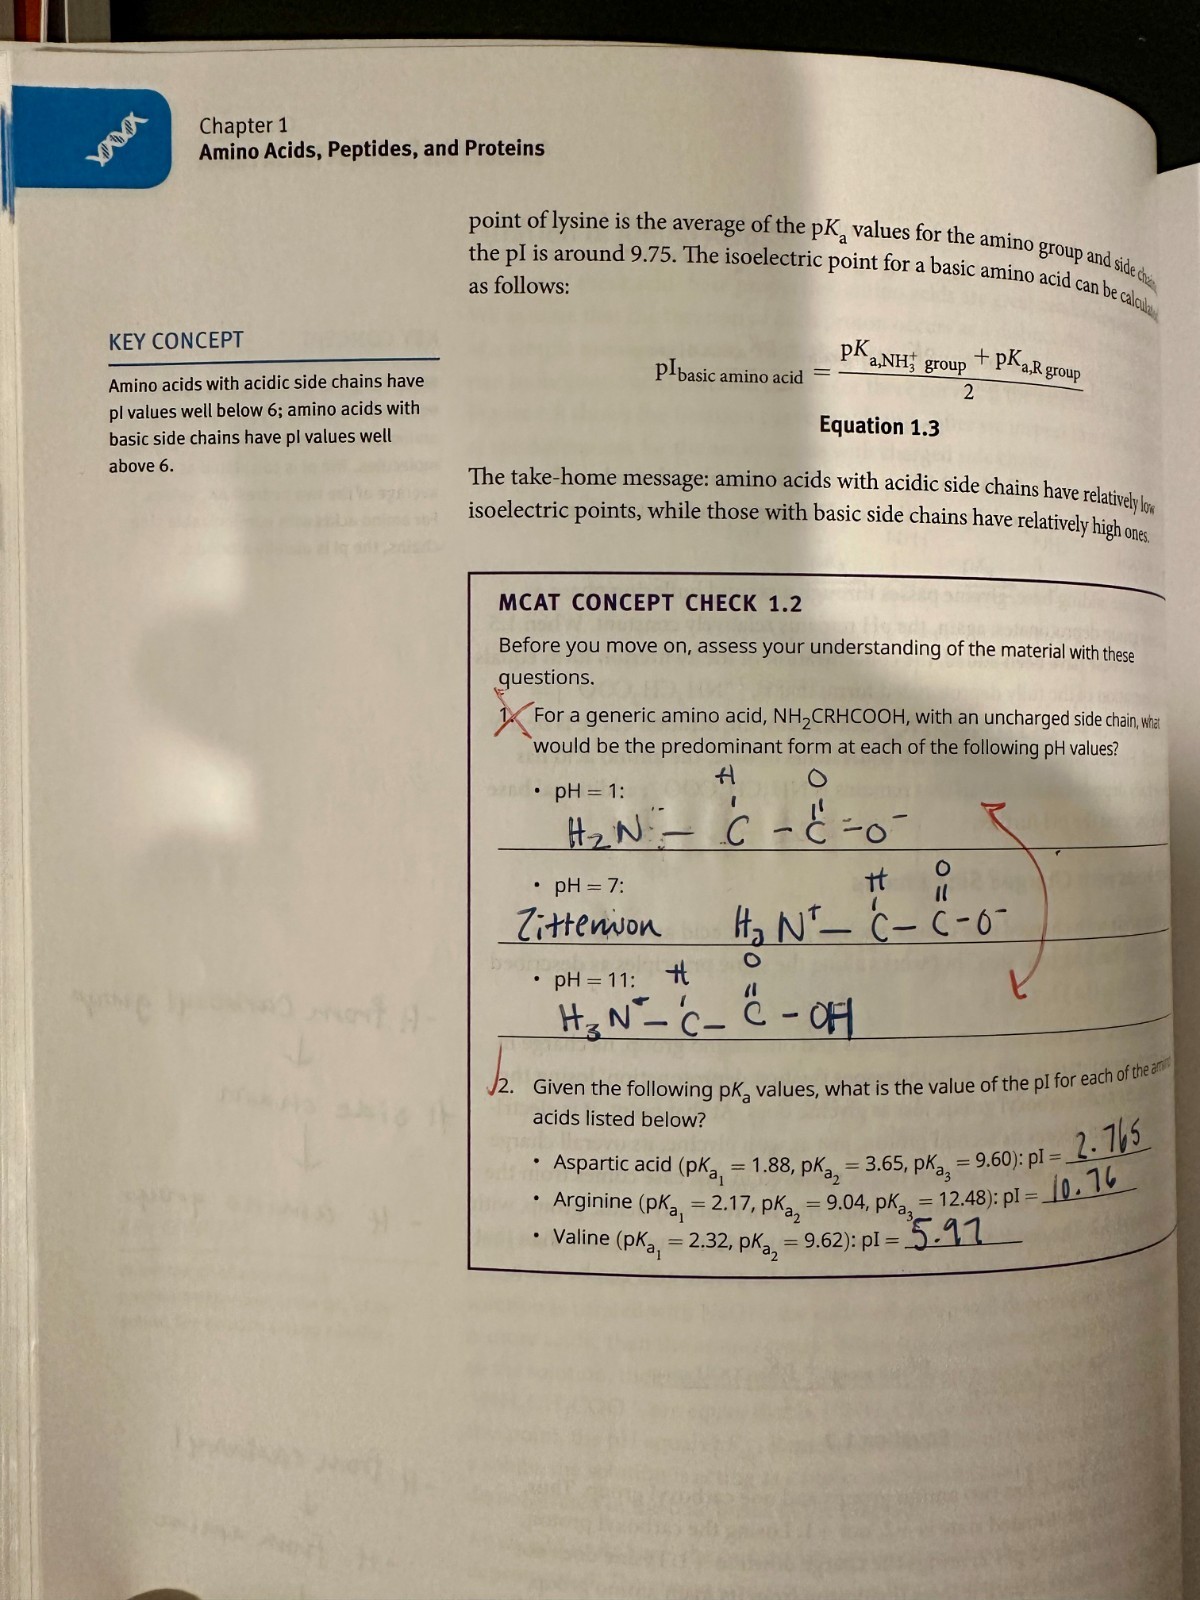 Chapter 1
Amino Acids, Peptides, and Proteins
point of lysine is the average of the pKₐ values for the amino group and side chain
the pI is around 9.75. The isoelectric point for a basic amino acid can be calculated
as follows:
pI basic amino acid = (pKa,NH₃⁺ group + pKa,R group) / 2
Equation 1.3
KEY CONCEPT
Amino acids with acidic side chains have
pI values well below 6; amino acids with
basic side chains have pI values well
above 6.
The take-home message: amino acids with acidic side chains have relatively low
isoelectric points, while those with basic side chains have relatively high ones.
MCAT CONCEPT CHECK 1.2
Before you move on, assess your understanding of the material with these
questions.
1. For a generic amino acid, NH₂CRHCOOH, with an uncharged side chain, what
would be the predominant form at each of the following pH values?
• pH = 1:
H O
H₂N: – C – C – O⁻
• pH = 7:
H O
Zitterion H₃N⁺ – C – C – O⁻
• pH = 11:
H O
H₃N⁺ – C – C – OH
2. Given the following pKₐ values, what is the value of the pI for each of the amino
acids listed below?
• Aspartic acid (pKₐ₁ = 1.88, pKₐ₂ = 3.65, pKₐ₃ = 9.60): pI = 2.765
• Arginine (pKₐ₁ = 2.17, pKₐ₂ = 9.04, pKₐ₃ = 12.48): pI = 10.76
• Valine (pKₐ₁ = 2.32, pKₐ₂ = 9.62): pI = 5.97